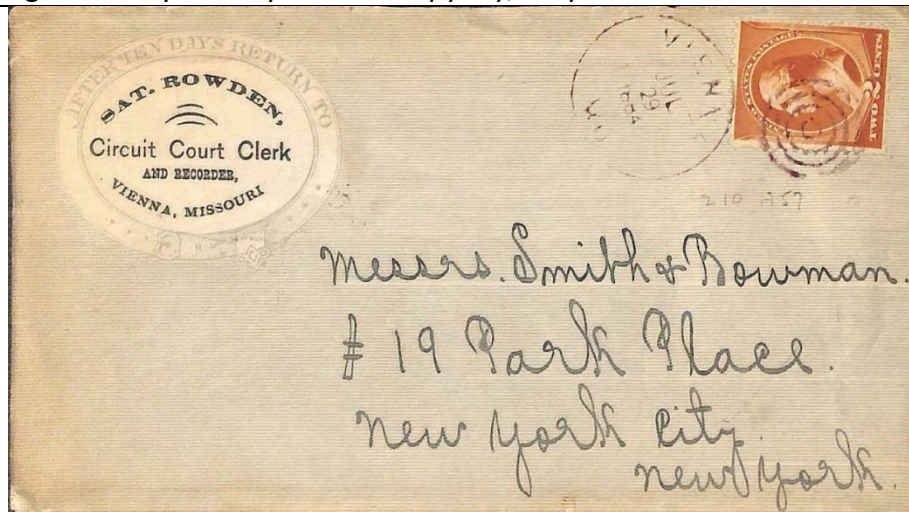 AFTER TEN DAYS RETURN TO
SAT. ROWDEN,
Circuit Court Clerk
AND RECORDER,
VIENNA, MISSOURI
VIENNA
JUL
29
1884
MO
UNITED STATES POSTAGE
TWO 2 CENTS
210 A57
Messrs. Smith & Bowman.
# 19 Park Place.
New York City.
New York.